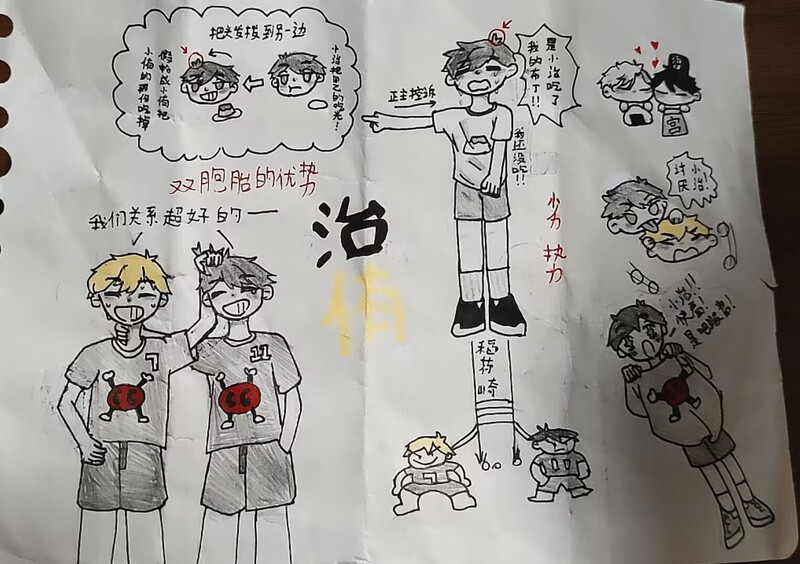 把头发拨到另一边
小治把自己的吃光!
假扮成小侑把
小侑的那份吃掉
双胞胎的优势
我们关系超好的一
治
侑
7
11
正主控诉
是小治吃了
我的布丁!!
我还没吃!!
劣势
稻荷崎
7
11
宫
小治!
讨厌
小治!!
快看!